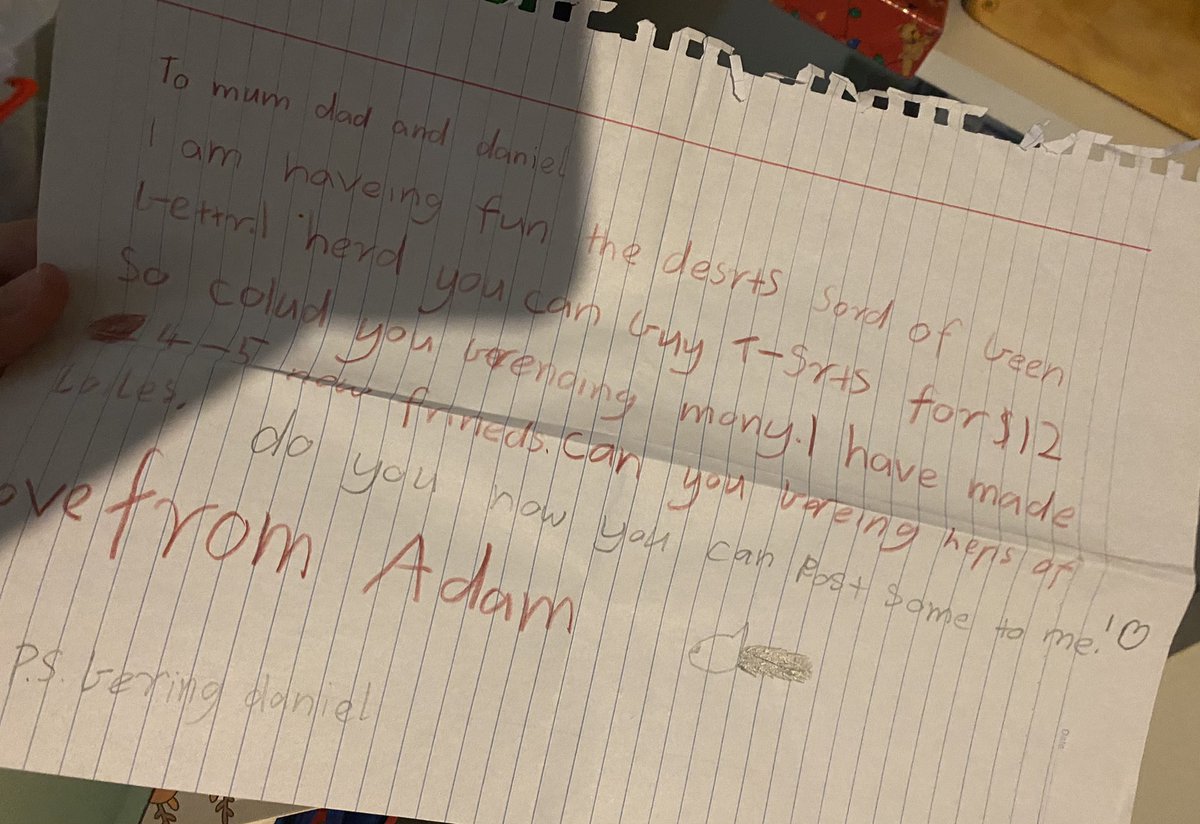 To mum dad and daniel
I am haveing fun the desrts sord of been
bettr.I herd you can buy T-Srts for $12
So colud you brending mony.I have made
4-5 new frineds. can you breing heps of
Loles. do you now you can Post some to me!
ove from Adam
P.S. bering daniel
Date